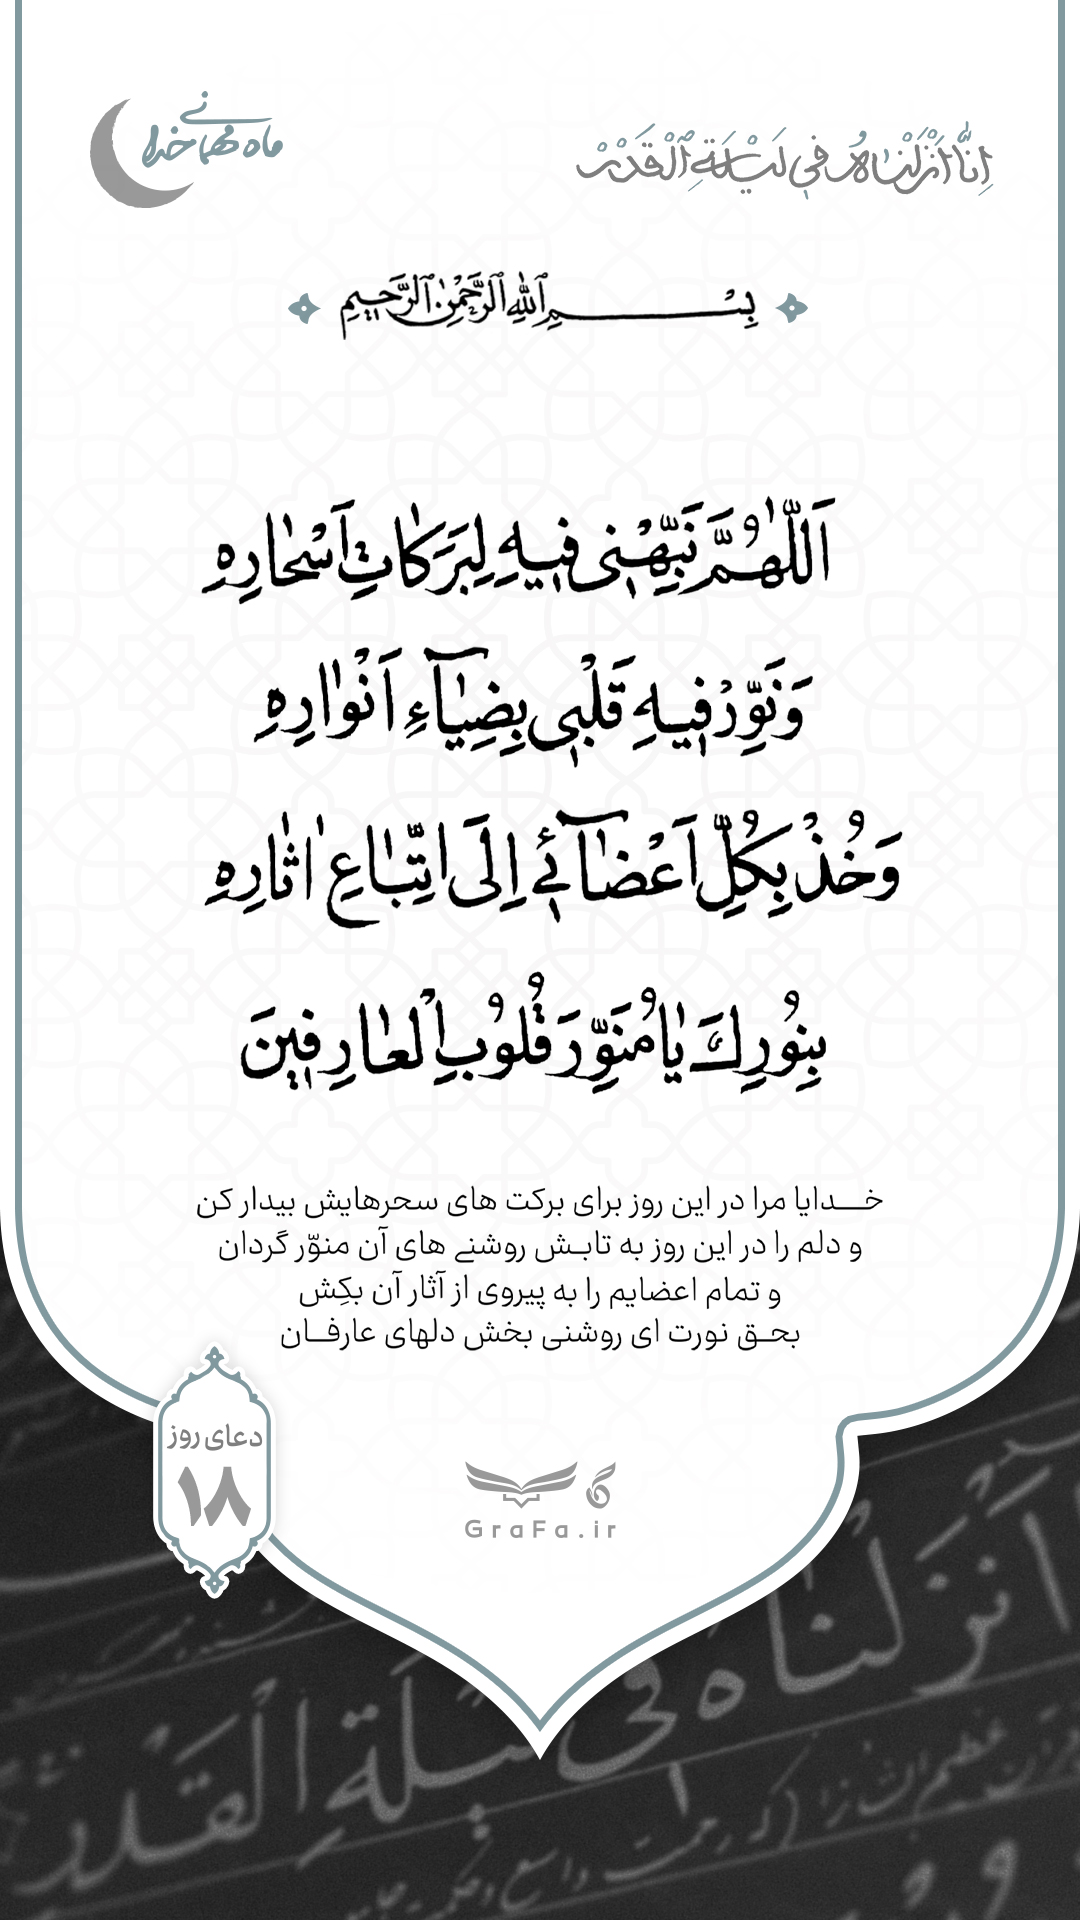 اِنّٰا اَنْزَلْنٰاهُ فِی لَیْلَةِ الْقَدْرْ
ماه مهمانی خدا
بِسْمِ اللهِ الرَّحْمٰنِ الرَّحیمِ
اَللّٰهُمَّ نَبِّهْنی فیهِ لِبَرَکٰاتِ اَسْحٰارِهِ
وَ نَوِّرْ فیهِ قَلْبی بِضِیٰآءِ اَنْوٰارِهِ
وَ خُذْ بِکُلِّ اَعْضٰآئی اِلَی اتِّبٰاعِ اٰثٰارِهِ
بِنُورِكَ یٰا مُنَوِّرَ قُلُوبِ الْعٰارِفینَ
خــدایا مرا در این روز برای برکت های سحرهایش بیدار کن
و دلم را در این روز به تابـش روشنے های آن منوّر گردان
و تمام اعضایم را به پیروی از آثار آن بکِش
بحـق نورت ای روشنی بخش دلهای عارفـان
دعای روز
۱۸
GraFa.ir
اَنْزَلْناهُ فی
لَیْلَةِ الْقَدْر